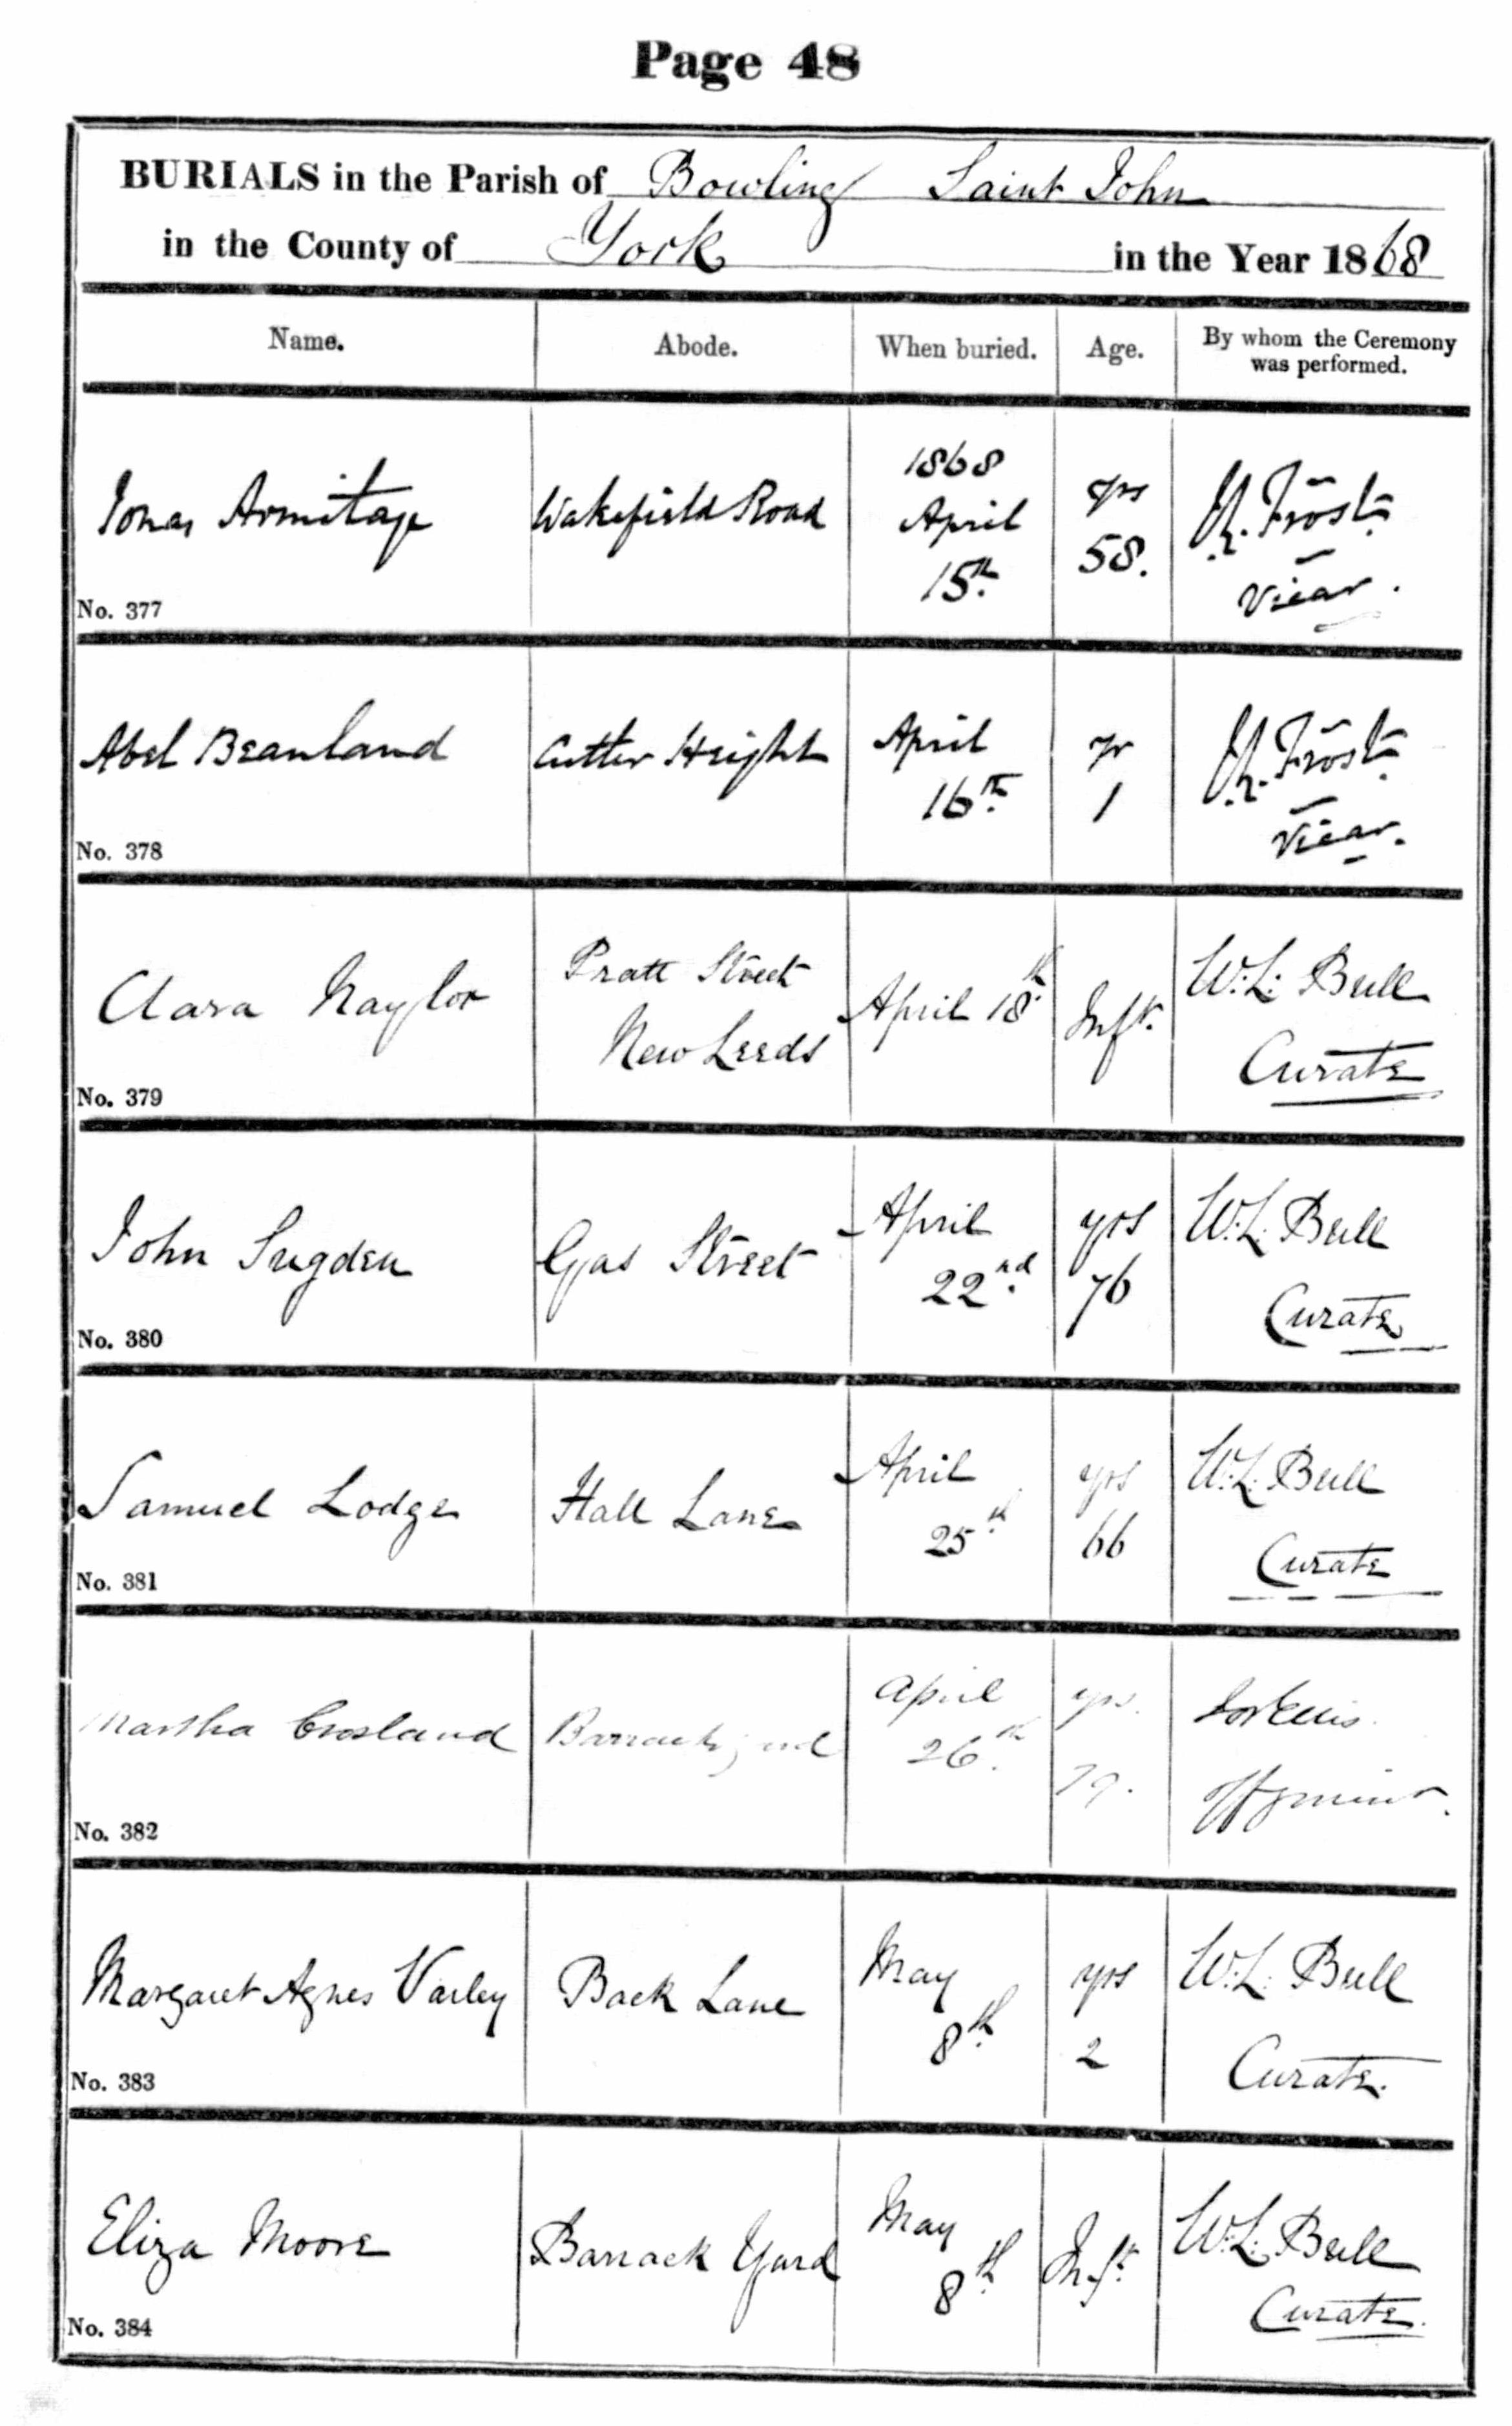 Page 48
BURIALS in the Parish of Bowling Saint John
in the County of York in the Year 1868
Name. Abode. When buried. Age. By whom the Ceremony was performed.
1868
Jonas Armitage Wakefield Road April yrs Frost
15th. 58. Vicar.
No. 377
Abel Beanland Cutler Height April yr Frost
16th. 1 Vicar.
No. 378
Pratt Street W. L. Bull
Clara Naylor April 18th. Inft.
New Leeds Curate
No. 379
John Sugden Gas Street April yrs W. L. Bull
22nd. 76 Curate
No. 380
Samuel Lodge Hall Lane April yrs W. L. Bull
25th 66 Curate
No. 381
Martha Crosland Barrack yard April yrs.
26th. 79. Off. minr.
No. 382
Margaret Agnes Varley Back Lane May yrs W. L. Bull
8th. 2 Curate.
No. 383
Eliza Moore Barrack Yard May Inft. W. L. Bull
8th. Curate.
No. 384